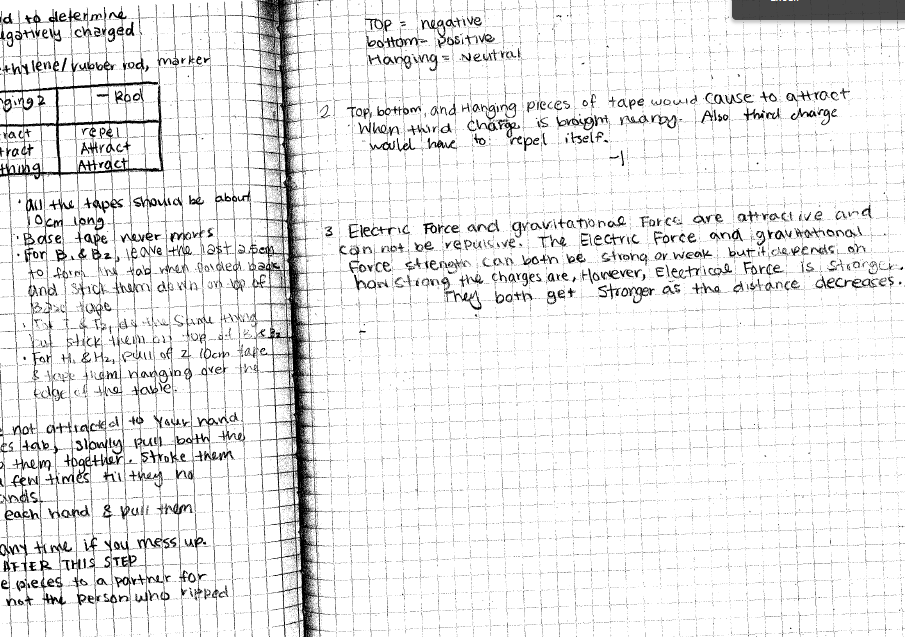 d to determine
egatively charged.
thylene/rubber rod, marker
ging 2 - Rod
ract repel
tract Attract
thing Attract
· all the tapes should be about
10cm long
· Base tape never moves
· For B1 & B2, leave the last 2.5cm
to form the tab when folded back
and stick them down on top of
Base tape
& T2, do the same thing
but stick them on top of B1 & B2
· For H1 & H2, pull of 2 10cm tape
& tape them hanging over the
edge of the table.
not attracted to your hand.
es tab, slowly pull both the
them together. Stroke them
few times til they no
ands.
each hand & pull them
any time if you mess up.
AFTER THIS STEP
e pieces to a partner for
not the person who ripped
TOP = negative
bottom- positive
Hanging = Neutral
2 Top, bottom, and Hanging pieces of tape would cause to attract
When third charge is brought nearby. Also third charge
would have to repel itself.
-1
3 Electric Force and gravitational Force are attractive and
can not be repulsive. The Electric Force and gravitational
Force strength can both be strong or weak but it depends on
how strong the charges are, However, Electrical Force is stronger.
They both get stronger as the distance decreases.